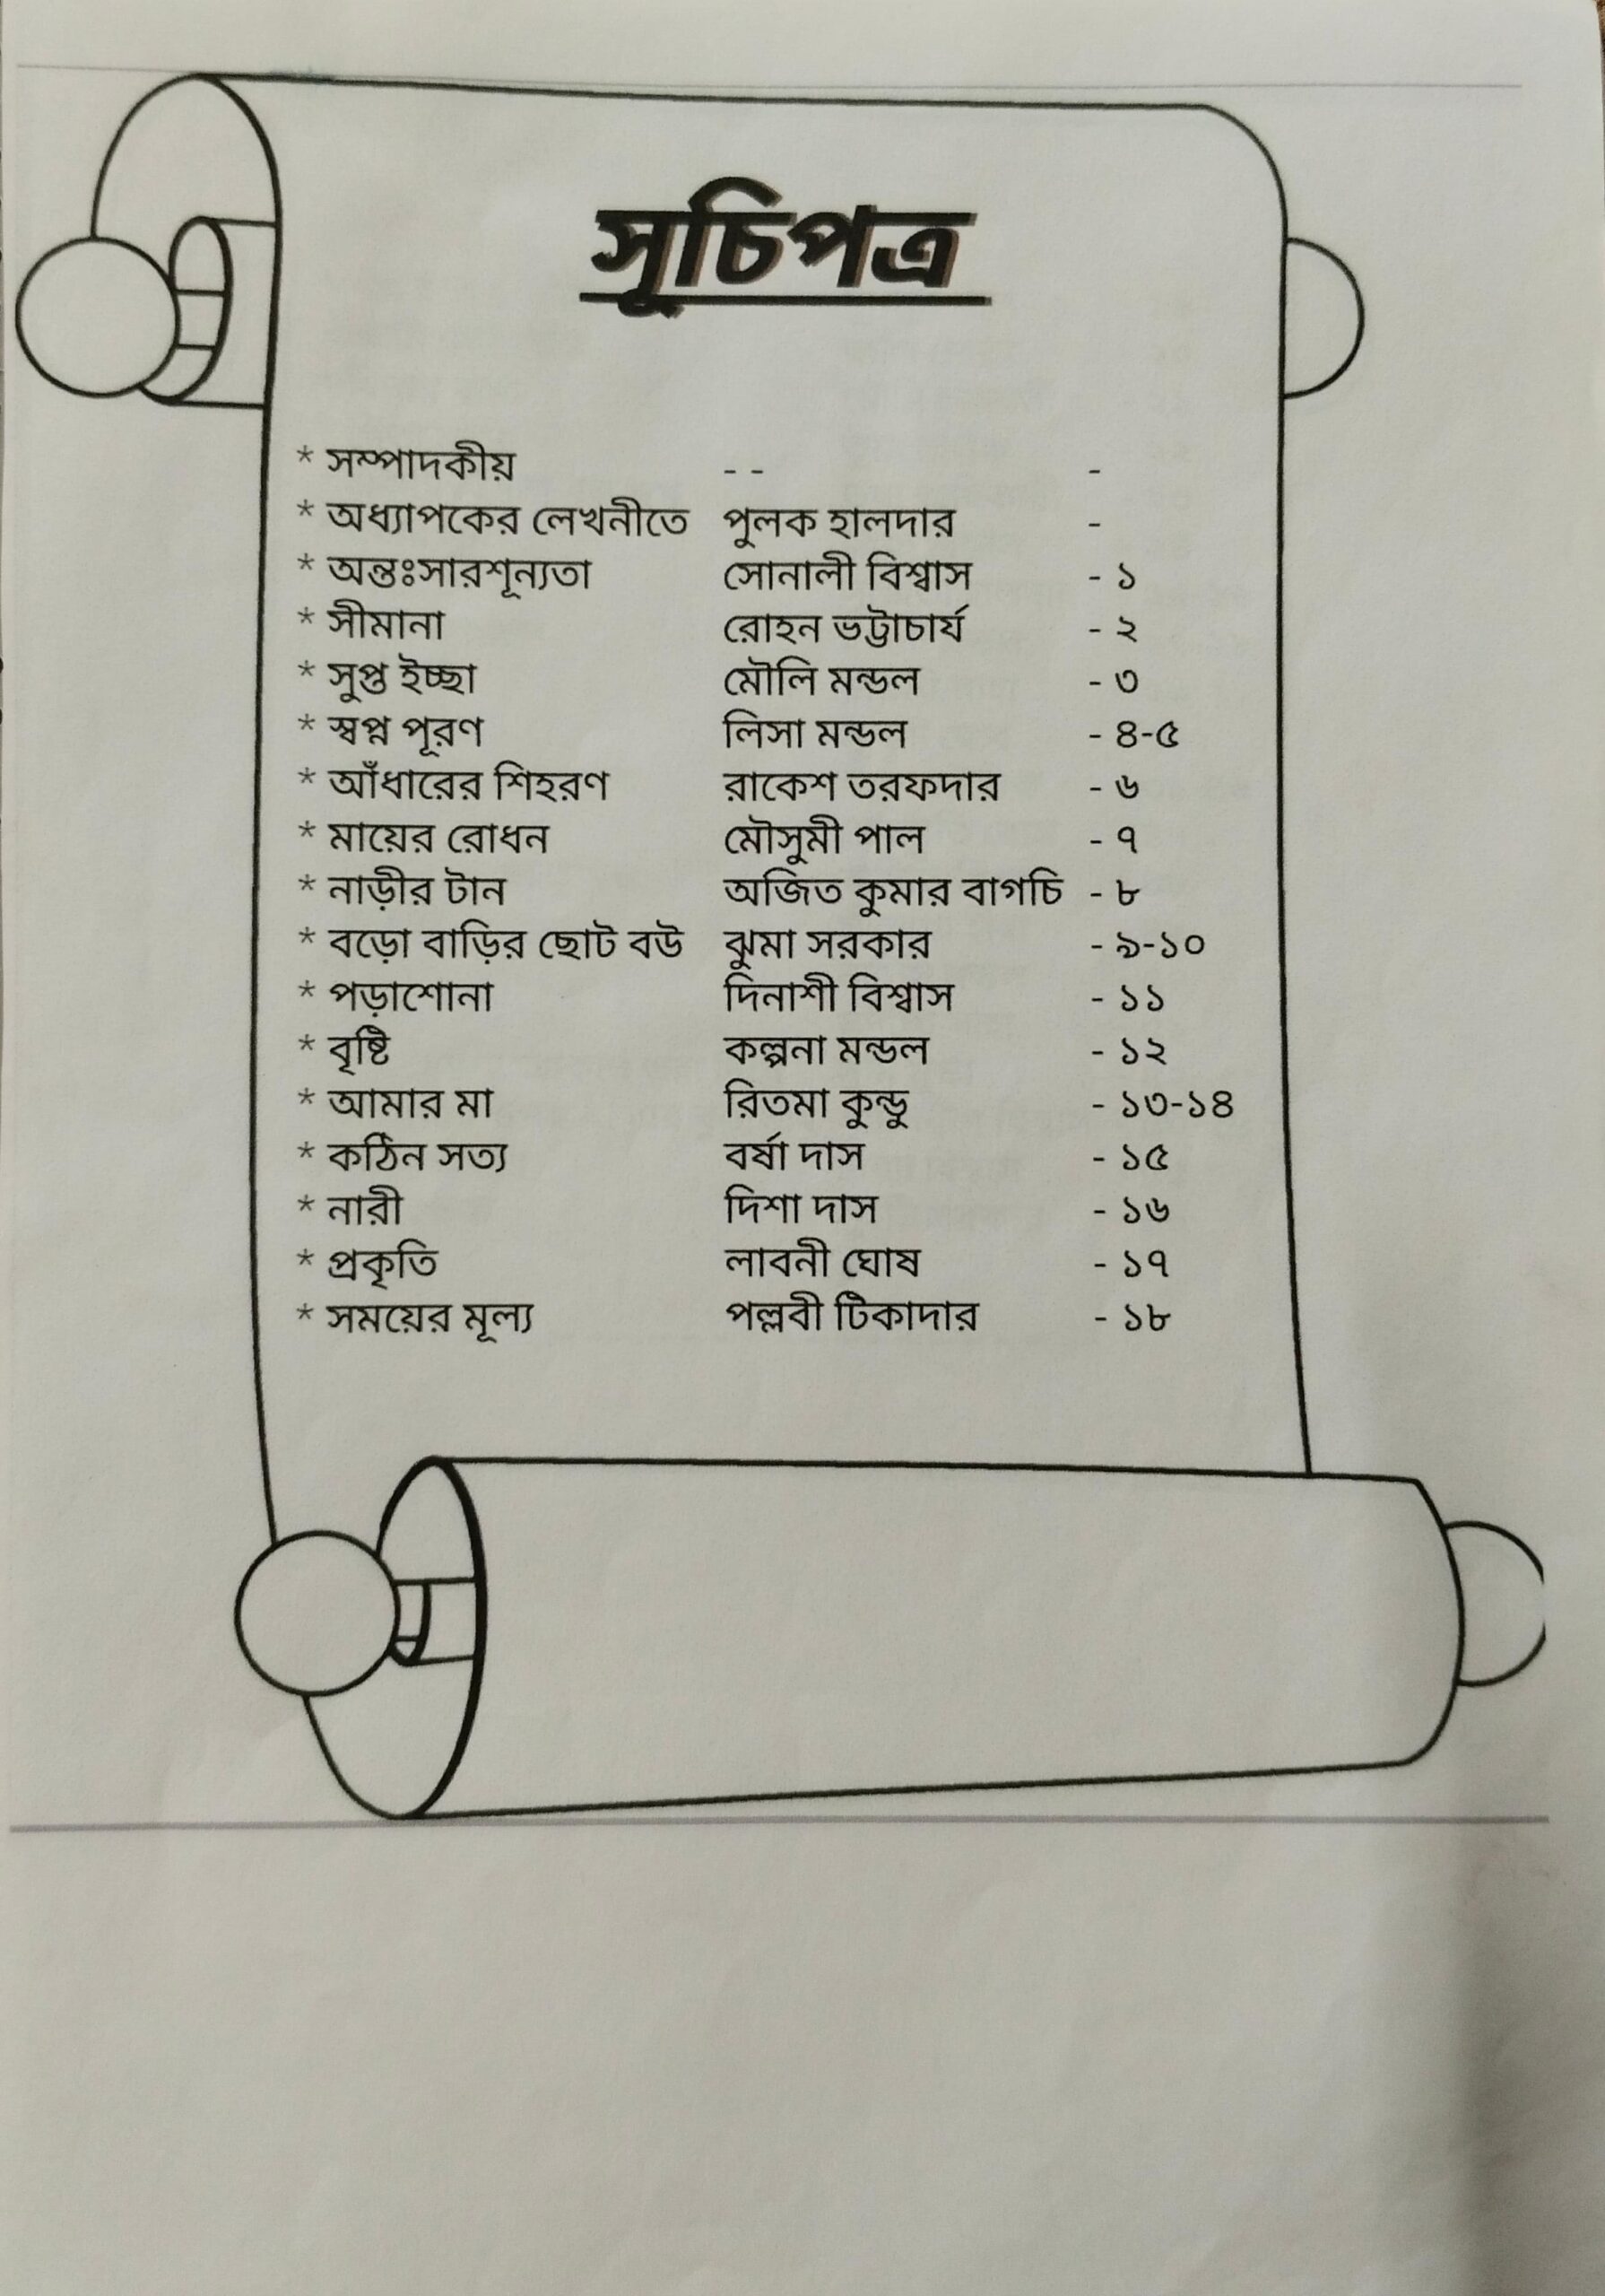 সূচিপত্র
* সম্পাদকীয় - - -
* অধ্যাপকের লেখনীতে পুলক হালদার -
* অন্তঃসারশূন্যতা সোনালী বিশ্বাস - ১
* সীমানা রোহন ভট্টাচার্য - ২
* সুপ্ত ইচ্ছা মৌলি মন্ডল - ৩
* স্বপ্ন পূরণ লিসা মন্ডল - ৪-৫
* আঁধারের শিহরণ রাকেশ তরফদার - ৬
* মায়ের রোধন মৌসুমী পাল - ৭
* নাড়ীর টান অজিত কুমার বাগচি - ৮
* বড়ো বাড়ির ছোট বউ ঝুমা সরকার - ৯-১০
* পড়াশোনা দিনাশী বিশ্বাস - ১১
* বৃষ্টি কল্পনা মন্ডল - ১২
* আমার মা রিতমা কুন্ডু - ১৩-১৪
* কঠিন সত্য বর্ষা দাস - ১৫
* নারী দিশা দাস - ১৬
* প্রকৃতি লাবনী ঘোষ - ১৭
* সময়ের মূল্য পল্লবী টিকাদার - ১৮